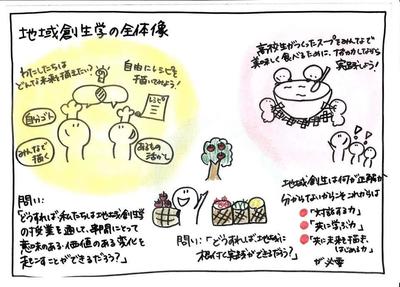 地域創生学の全体像
わたしたちは
どんな未来を描きたい？
自由にレシピを
描いてみよう！
レシピ
自分ごと
みんなで
描く
あるもの
活かす
高校生がつくったスープをみんなで
美味しく食べるために、
しながら
実践しよう！
問い：
「どうすれば私たちは地域創生学
の授業を通して、仲間にとって
意味のある・価値のある変化を
起こすことができるだろう？」
問い：「どうすれば地域に
根付く実践ができるだろう？」
地域創生は何が正解か
分からないからこそこれからは
「対話する力」
「共に学ぶ力」
「共に未来を描き、
はじめる力」
が必要